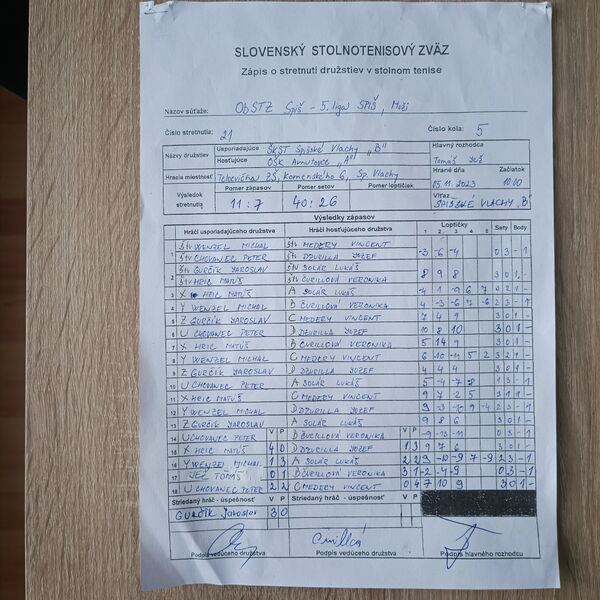 SLOVENSKÝ STOLNOTENISOVÝ ZVÄZ
Zápis o stretnutí družstiev v stolnom tenise
Názov súťaže: ObSTZ Spiš - 5. liga SPIŠ, Muži
Číslo stretnutia: 21 Číslo kola: 5
Názvy družstiev Usporiadajúce ŠKST Spišské Vlachy "B" Hlavný rozhodca
Hosťujúce OŠK Arnutovce "A" Tomáš
Hracia miestnosť Telocvičňa ZŠ, Komenského 6, Sp. Vlachy Hrané dňa Začiatok
05.11.2023 10:00
Výsledok stretnutia Pomer zápasov Pomer setov Pomer loptičiek Víťaz
11:7 40:26 SPIŠSKÉ VLACHY "B"
Výsledky zápasov
Hráči usporiadajúceho družstva Hráči hosťujúceho družstva Loptičky Sety Body
1 2 3 4 5
1 štv WENZEL MICHAL štv MEDERY VINCENT
štv CHOVANEC PETER štv DZURILLA JOZEF -3 -6 -4 0 3 - 1
2 štv GURČÍK JAROSLAV štv SOLÁR LUKÁŠ
štv HRIC MATÚŠ štv ČURILLOVÁ VERONIKA 8 9 8 3 0 1 -
3 X HRIC MATÚŠ A SOLÁR LUKÁŠ
4 Y WENZEL MICHAL B ČURILLOVÁ VERONIKA
5 Z GURČÍK JAROSLAV C MEDERY VINCENT 7 4 9 3 0 1 -
6 U CHOVANEC PETER D DZURILLA JOZEF 10 8 10 3 0 1 -
7 X HRIC MATÚŠ B ČURILLOVÁ VERONIKA 5 14 9 3 0 1 -
8 Y WENZEL MICHAL C MEDERY VINCENT 6 10 -11 5 2 3 2 1 -
9 Z GURČÍK JAROSLAV D DZURILLA JOZEF 4 4 4 3 0 1 -
10 U CHOVANEC PETER A SOLÁR LUKÁŠ 5 -4 -7 -8 1 3 - 1
11 X HRIC MATÚŠ C MEDERY VINCENT
12 Y WENZEL MICHAL D DZURILLA JOZEF
13 Z GURČÍK JAROSLAV A SOLÁR LUKÁŠ 9 8 6 3 0 1 -
14 U CHOVANEC PETER V P B ČURILLOVÁ VERONIKA V P -9 -13 -11 0 3 - 1
15 X HRIC MATÚŠ 4 0 D DZURILLA JOZEF 1 3 9 7 6 3 0 1 -
16 Y WENZEL MICHAL 1 3 A SOLÁR LUKÁŠ 2 2 9 -10 -9 7 -9 2 3 - 1
17 JEŽ TOMÁŠ 0 1 B ČURILLOVÁ VERONIKA 3 1 -2 -4 -9 0 3 - 1
18 U CHOVANEC PETER 2 2 C MEDERY VINCENT 0 4 7 10 9 3 0 1 -
Striedaný hráč - úspešnosť V P Striedaný hráč - úspešnosť V P
GURČÍK Jaroslav 3 0
Podpis vedúceho družstva Podpis vedúceho družstva Podpis hlavného rozhodcu